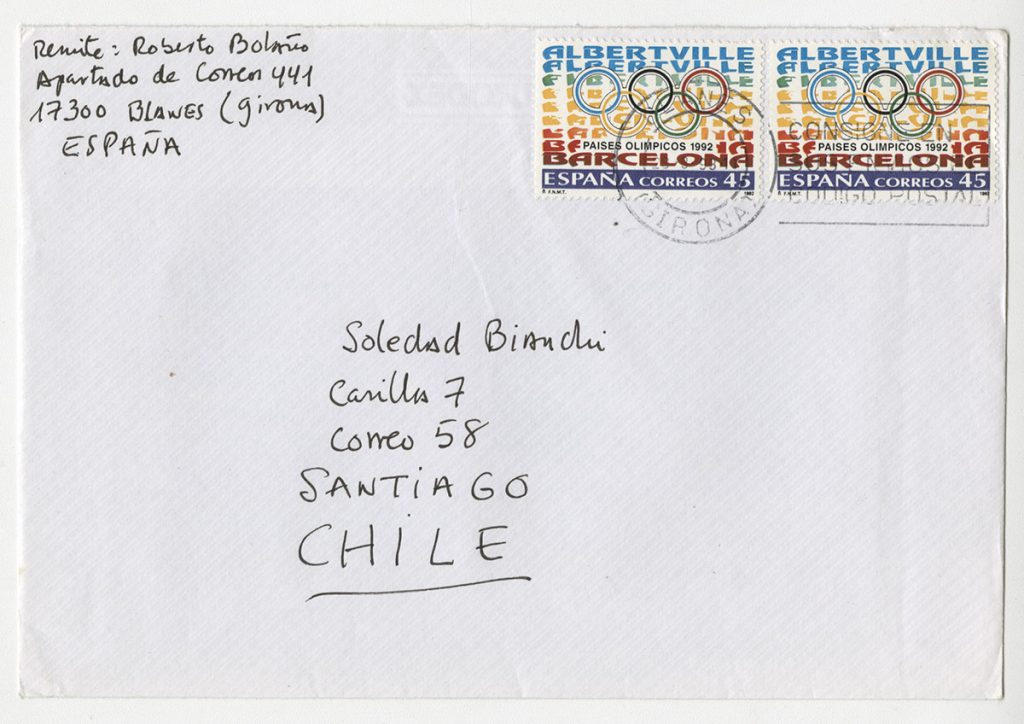 Remite: Roberto Bolaño
Apartado de Correos 441
17300 BLANES (Girona)
ESPAÑA
ALBERTVILLE
ALBERTVILLE
PAISES OLIMPICOS 1992
BARCELONA
ESPAÑA CORREOS 45
F.N.M.T. 1992
ALBERTVILLE
ALBERTVILLE
PAISES OLIMPICOS 1992
BARCELONA
ESPAÑA CORREOS 45
F.N.M.T. 1992
(GIRONA)
CONSIGNE EN
CODIGO POSTAL
Soledad Bianchi
Casilla 7
Correo 58
SANTIAGO
CHILE